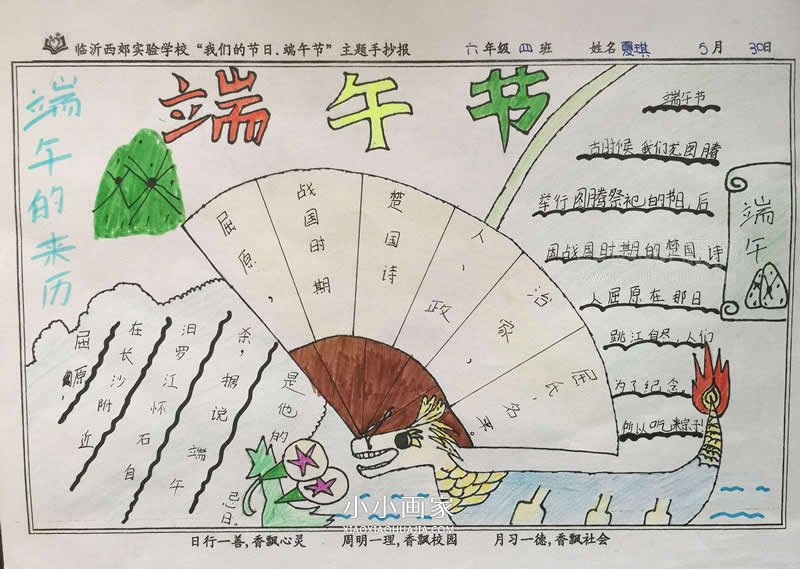 临沂西郊实验学校“我们的节日.端午节”主题手抄报 六年级四班 姓名夏琪 5月30日
端午节
端午的来历
屈原，
战国时期
楚国诗
人、政
治家，
屈氏，名平。
端午节
古时候我们龙图腾
举行图腾祭祀的节日，后
因战国时期的楚国，诗
人屈原在那日
跳江自尽，人们
为了纪念，
所以吃粽子
端午
屈原，
在长沙附近
汨罗江怀石自
杀，据说端午
是他的忌日。
小小画家
XIAOXIAOHUAJIA.COM
日行一善，香飘心灵 周明一理，香飘校园 月习一德，香飘社会